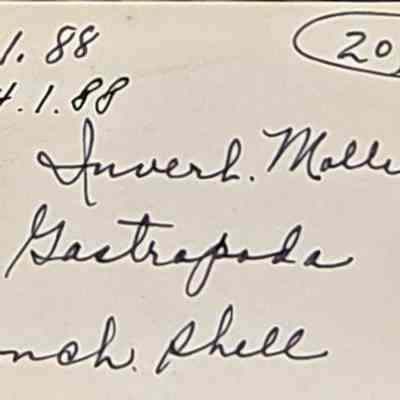 1.88 20
4.1.88
Inverb. Moll
Gastropoda
nch. shell